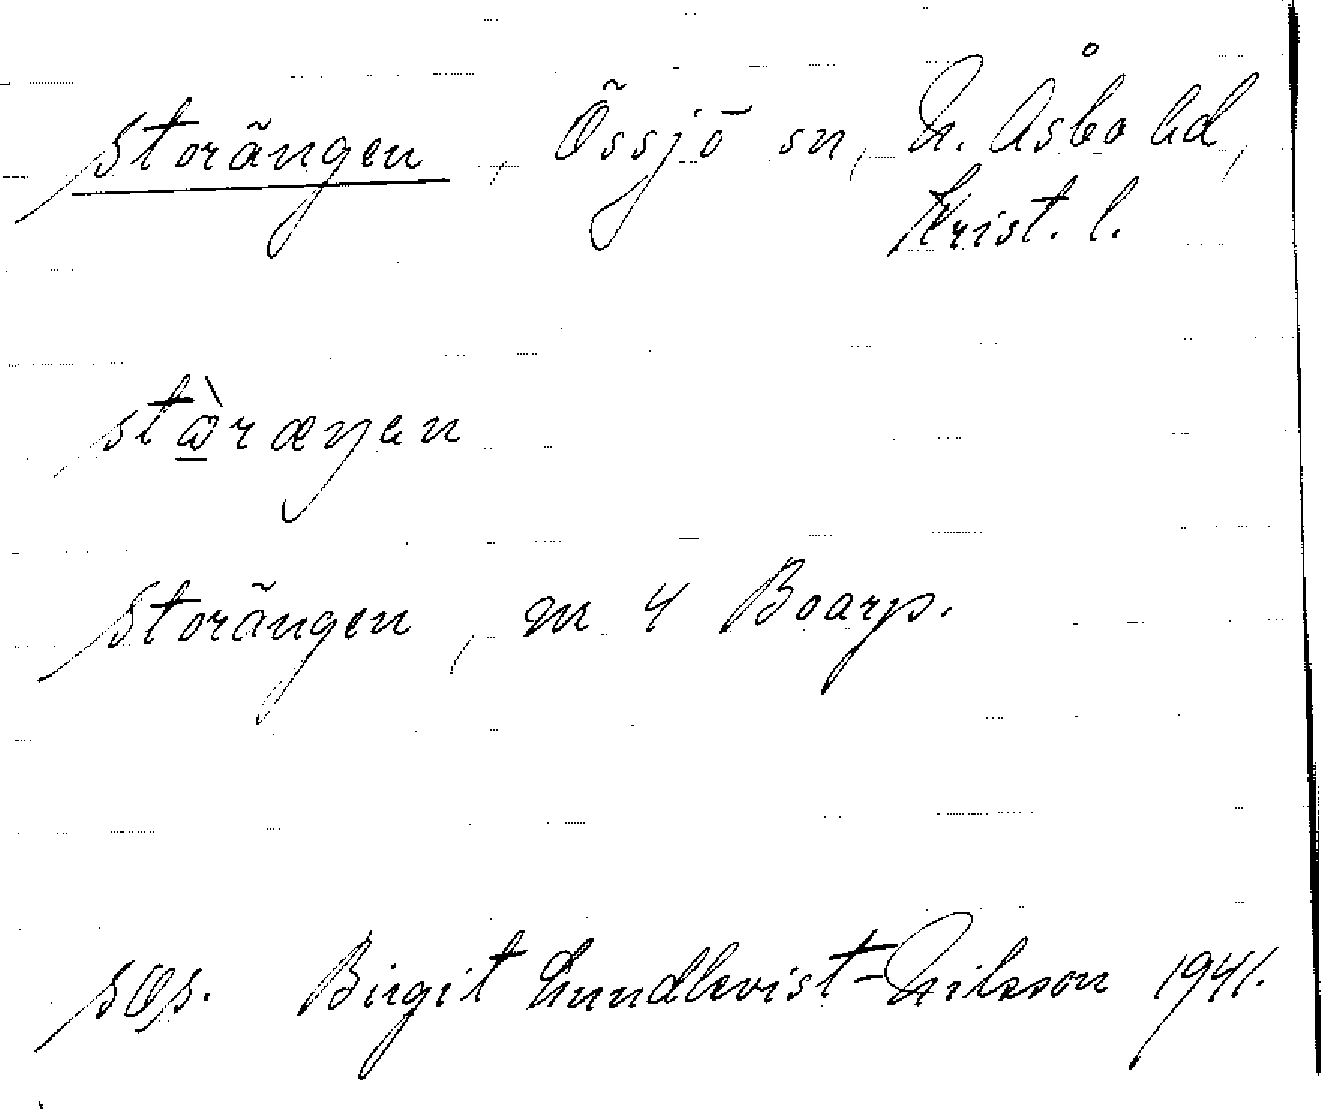 Storängen, Össjö sn, N. Åsbo hd,
Krist. l.
stὼ̲ræŋɐn
Storängen, m 4 Boarp.
sqs. Birgit Lundkvist-Nilsson 1941.